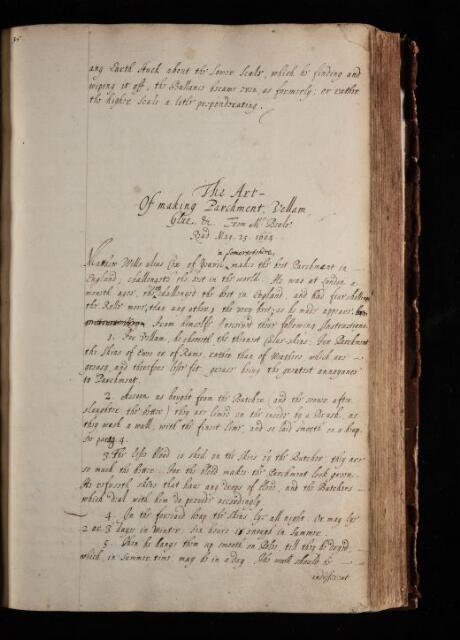 any Earth stuck about the Lower Scale, which he finding and
wiping it off, the Ballance became even, as formerly, or rather
the higher Scale a litle preponderating.
The Art
Of making Parchment, Vellam,
Glue, &c. From Mr Beale
Read Mar. 25. 1664.
in Somersetshire,
Mathew Wills alias Cox of Yeavil makes the best Parchment in
England, challengeth the best in the world. He was at London a
month agoe, challengeth the best in England, and had four shillings
the Rolle more, than any other, the very best, as he made appeare,
From himselfe I received these following Instructions.
1. For Vellam, he chooseth the thinnest Calve-skins. For Parchment
the Skins of Ewes or of Rams, rather than of Wethers which are
greasy, and therefore lesse fit, grease being the greatest annoyance
to Parchment.
2. Assoon as bought from the Butcher (and the sooner after
slaughter the better) they are limed on the inside by a Brush, as
they wash a wall, with the finest lime, and so laid smooth on a heap.
4.
3. The lesse blood is shed on the Skins by the Butcher, they are
so much the better. For the blood makes the Parchment look green.
He refuseth skins that have any drops of blood, and the Butchers
which deal with him do provide accordingly
4. On the foresaid heap the Skins lye all night. Or may lye
2 or 3 dayes in Winter. Six hours is enough in Summer.
5. Then he hangs them up smooth on Poles, till they be dryed,
which, in Summer time may be in a day. The wooll should be
indifferent